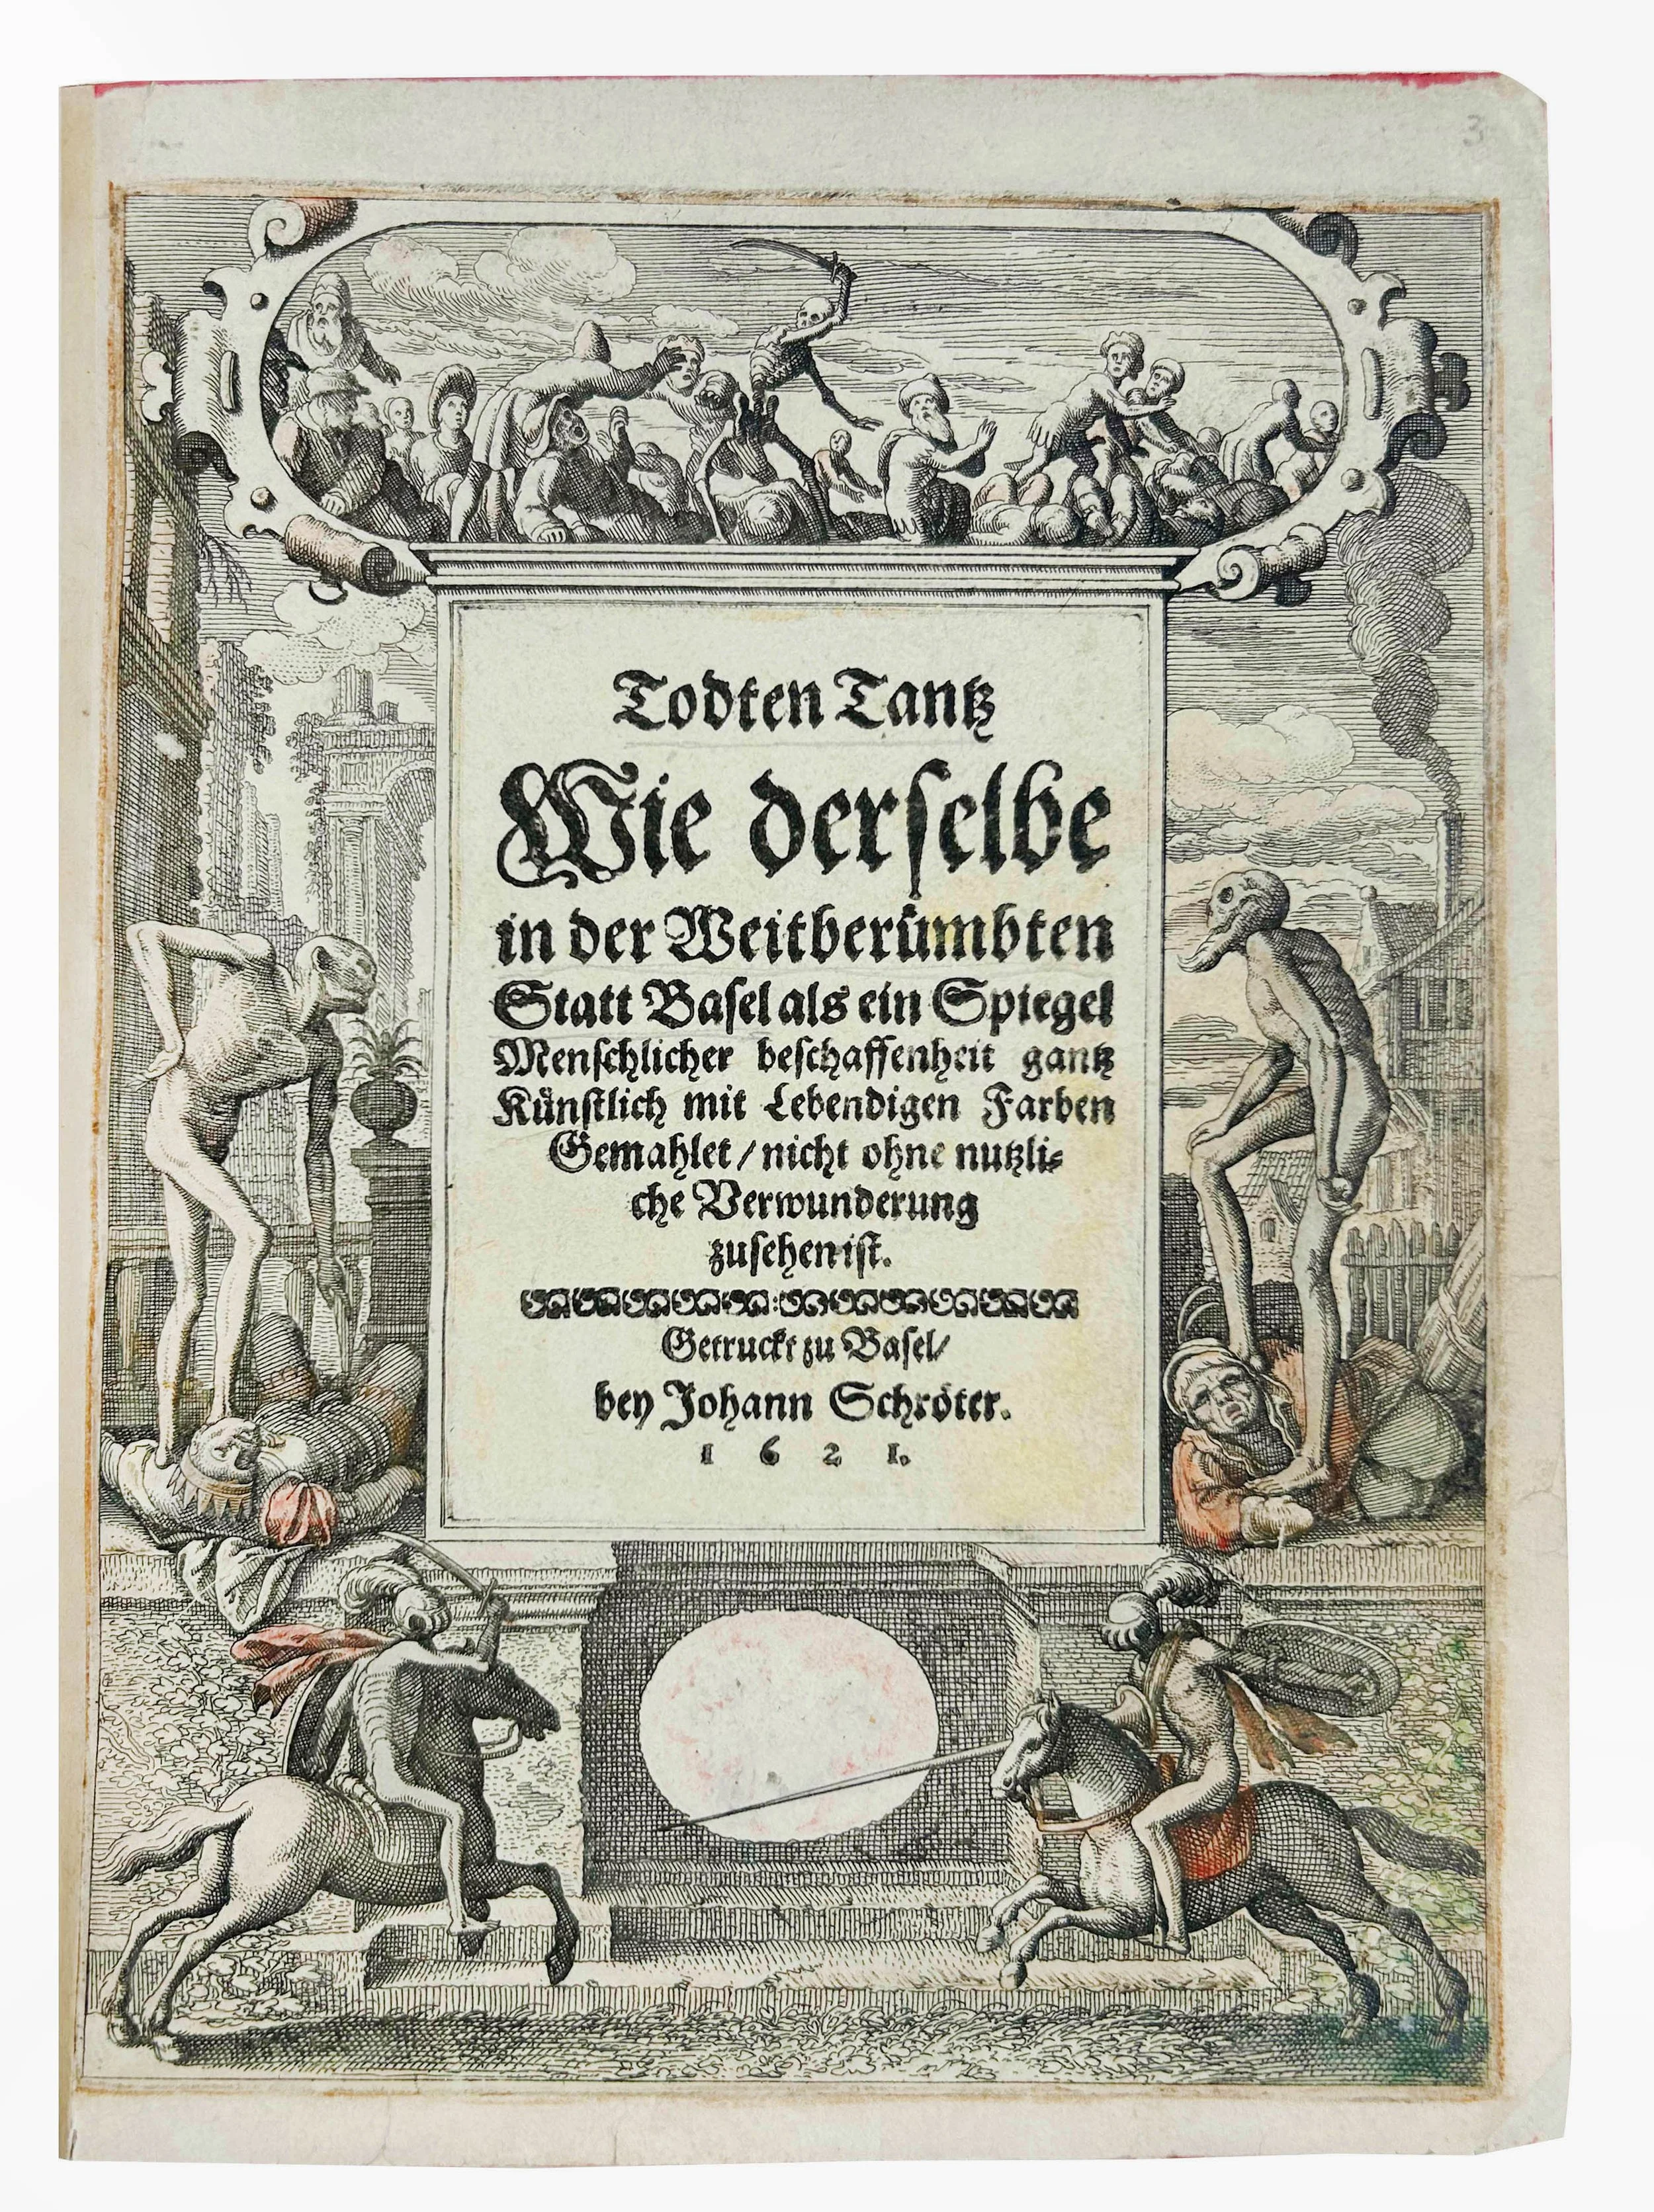 3
Todten Tantz
Wie derſelbe
in der Weitberuͤmbten
Statt Baſel als ein Spiegel
Menſchlicher beſchaffenheit gantz
Kuͤnſtlich mit Lebendigen Farben
Gemahlet / nicht ohne nutzli⸗
che Verwunderung
zuſehen iſt.
Getruckt zu Baſel /
bey Johann Schroͤter.
1 6 2 1.